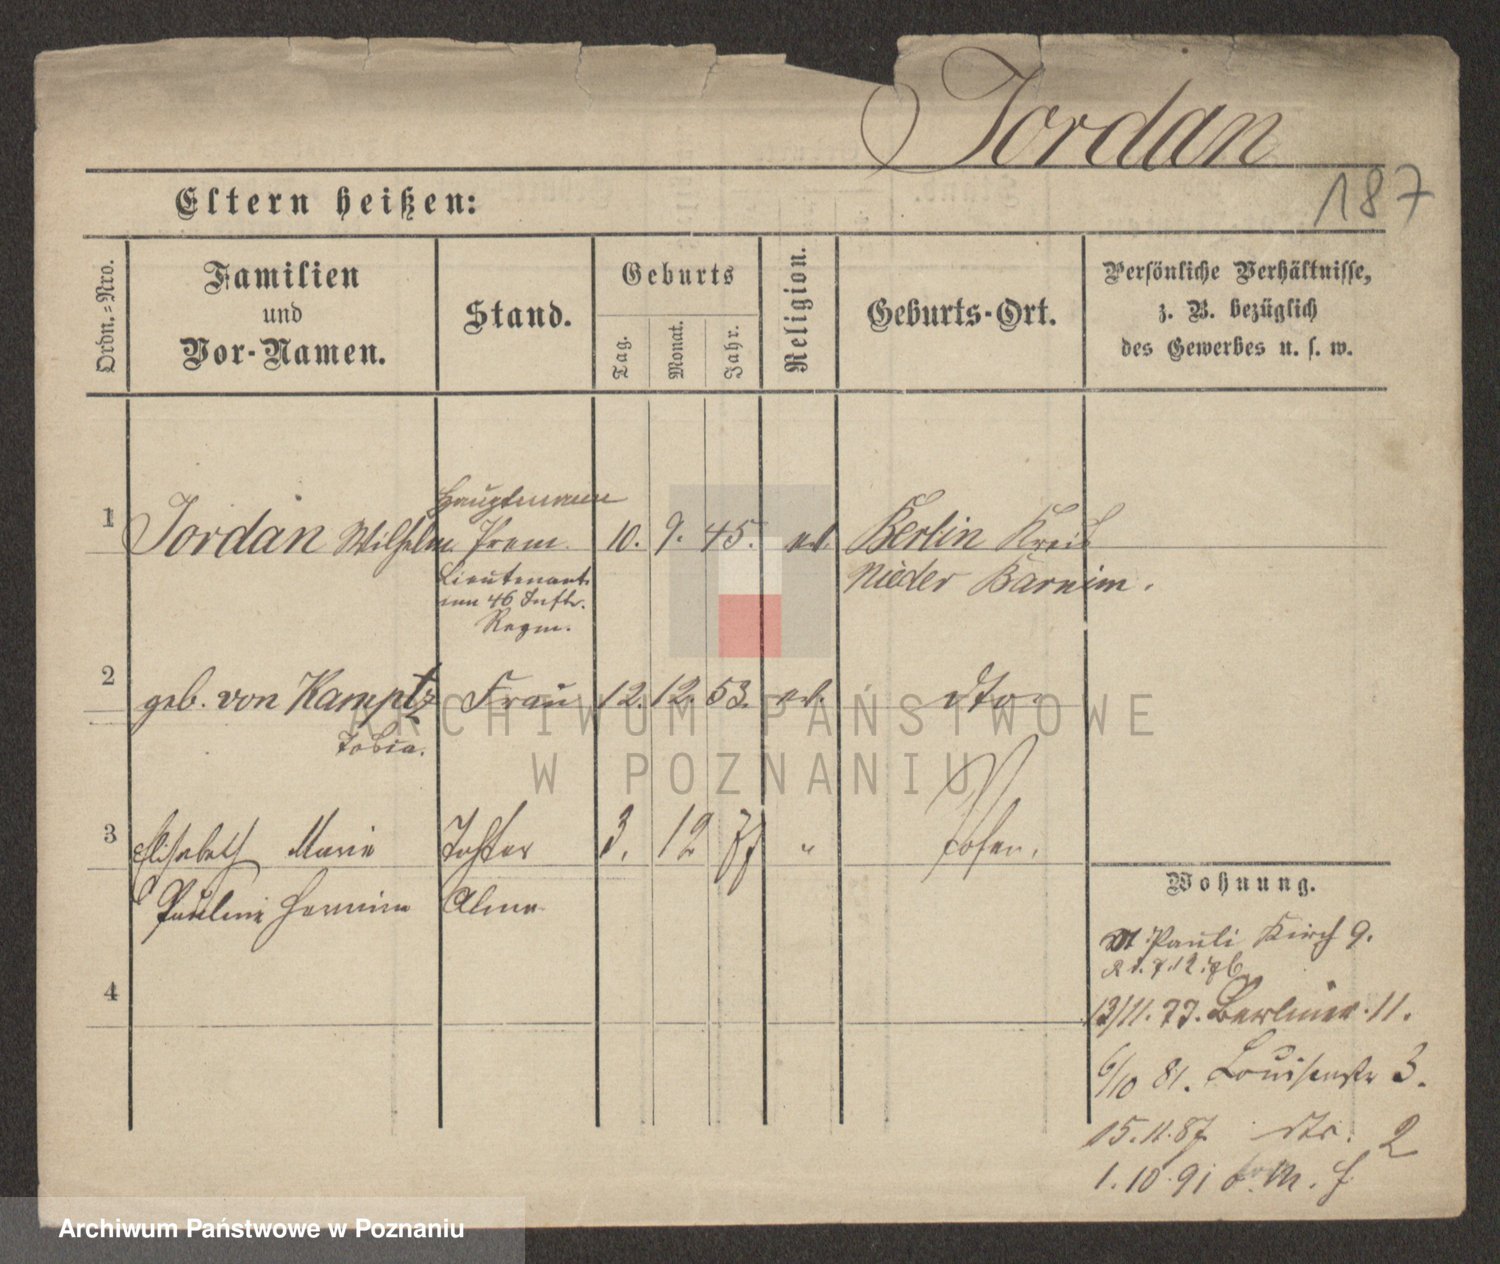 Jordan
187
Eltern heißen:
Ordn.=Nro.
Familien
und
Vor-Namen.
Stand.
Geburts
Tag.
Monat.
Jahr.
Religion.
Geburts-Ort.
Persönliche Verhältnisse,
z. B. bezüglich
des Gewerbes u. s. w.
Hauptmann
1 Jordan Wilhelm Prem. 10. 9. 45. ev. Berlin Kreis
Lieutenant Nieder Barnim.
im 46 Inftr.
Regm.
2 geb. von Kamptz Frau 12. 12. 53. ev. dto
3 Elisabeth Marie Tochter 3. 12 77 " Posen.
Pauline Hermine Alma
Wohnung.
St Pauli Kirch 9.
4
13/11. 77. Berliner. 11.
6/10 81. Louisenstr 3.
15.11.87 dto. 2
1.10.91
ARCHIWUM PAŃSTWOWE
W POZNANIU
Archiwum Państwowe w Poznaniu